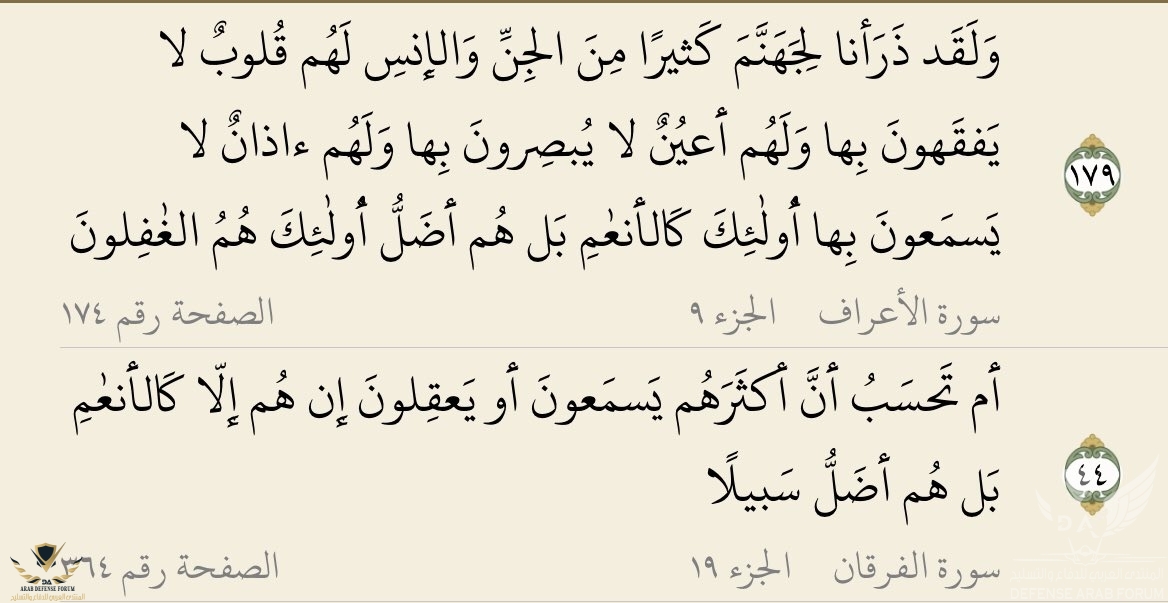 وَلَقَد ذَرَأنا لِجَهَنَّمَ كَثيرًا مِنَ الجِنِّ وَالإِنسِ لَهُم قُلوبٌ لا
يَفقَهونَ بِها وَلَهُم أَعيُنٌ لا يُبصِرونَ بِها وَلَهُم ءاذانٌ لا
١٧٩
يَسمَعونَ بِها أُولٰئِكَ كَالأَنعٰمِ بَل هُم أَضَلُّ أُولٰئِكَ هُمُ الغٰفِلونَ
سورة الأعراف الجزء ٩ الصفحة رقم ١٧٤
أَم تَحسَبُ أَنَّ أَكثَرَهُم يَسمَعونَ أَو يَعقِلونَ إِن هُم إِلّا كَالأَنعٰمِ
٤٤
بَل هُم أَضَلُّ سَبيلًا
سورة الفرقان الجزء ١٩ الصفحة رقم ٣٦٤
DA
ARAB DEFENSE FORUM
DA
DEFENSE ARAB FORUM